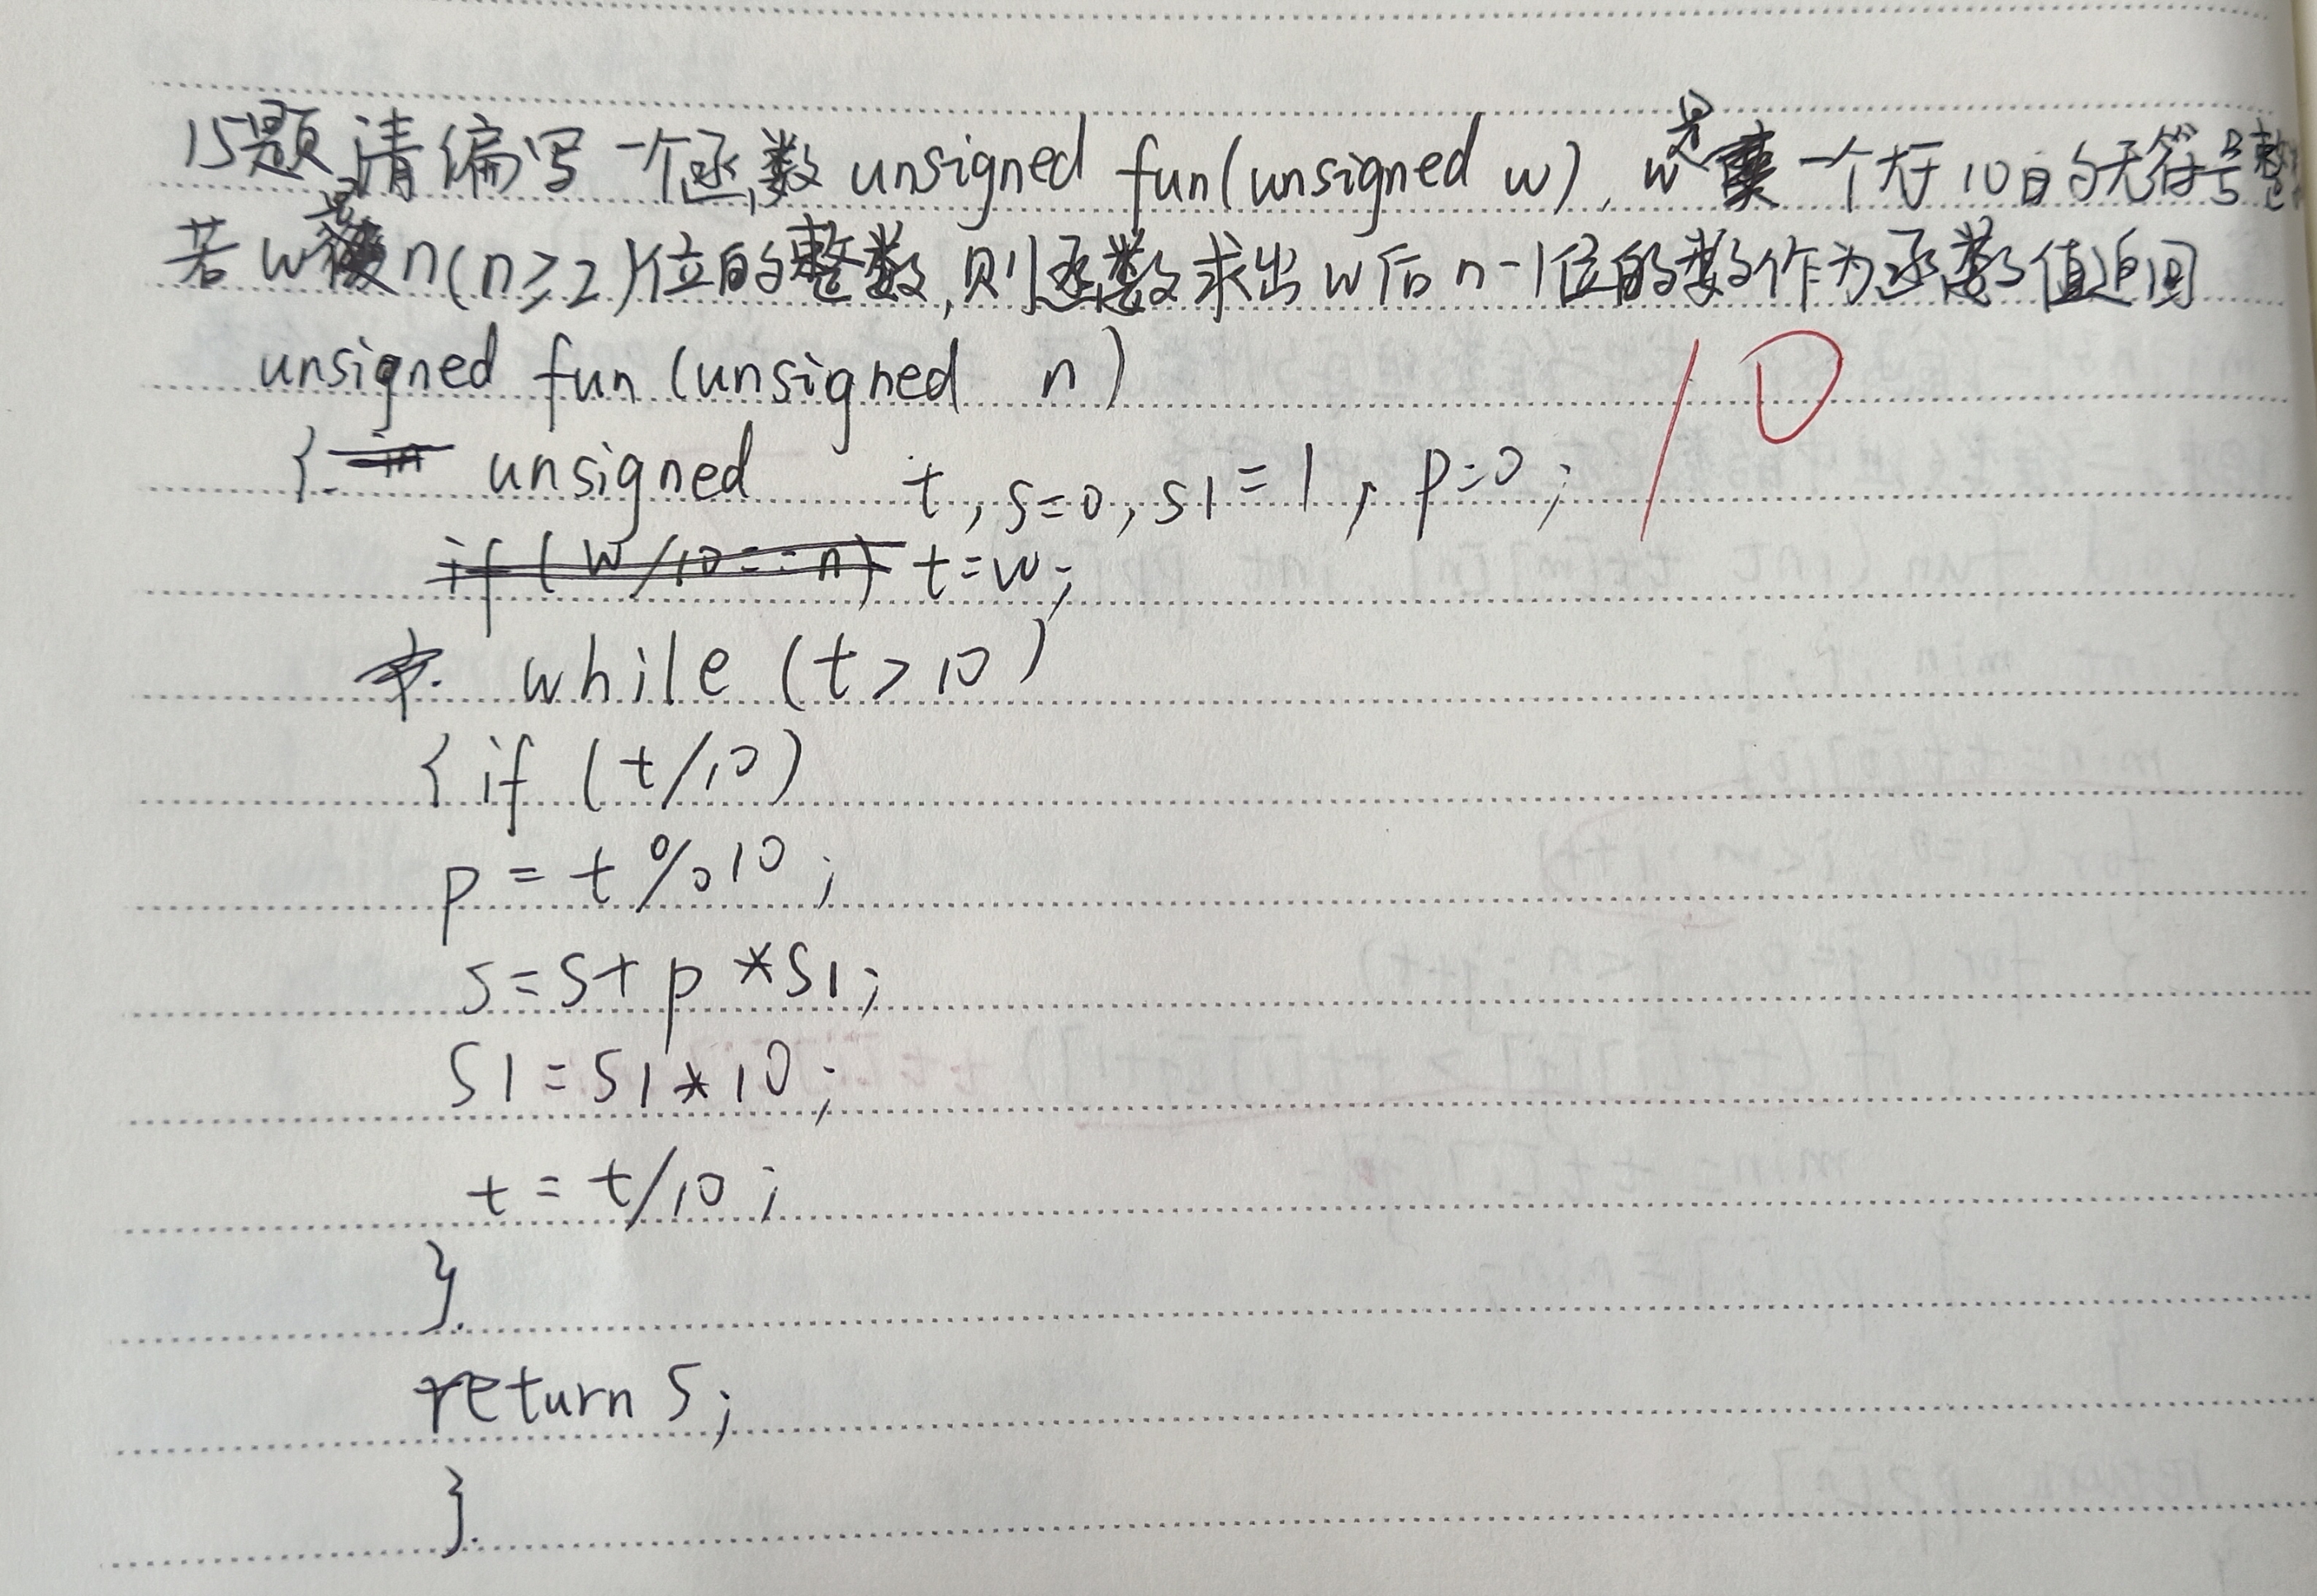 15题 请编写一个函数 unsigned fun(unsigned w), w是一个大于10的无符号整
若w是n(n≥2)位的整数,则函数求出w后n-1位的数作为函数值返回
unsigned fun (unsigned n)
10
{ unsigned t, s=0, s1=1, p=0;
if (w/10==n) t=w;
while (t>10)
{ if (t/10)
p = t%10;
s=s+p*s1;
s1=s1*10;
t = t/10;
}.
return s;
}.